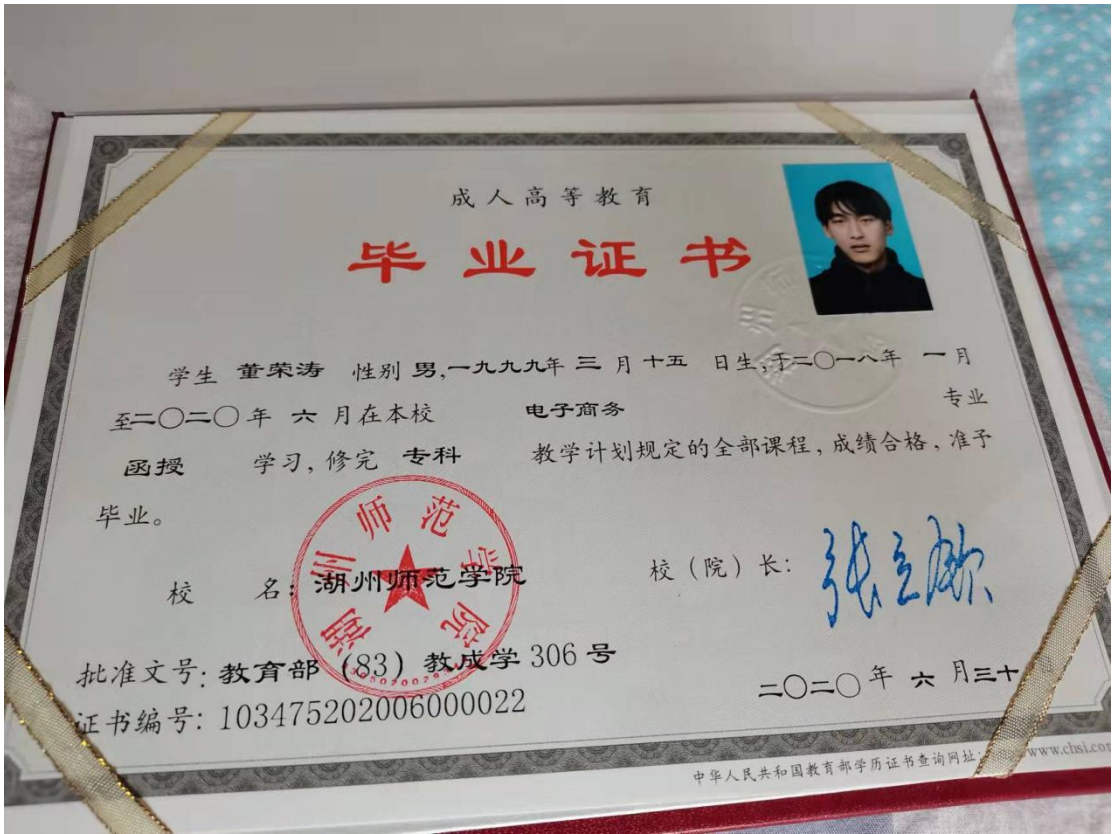 成人高等教育
毕业证书
学生 董荣涛 性别 男,一九九九年 三 月 十五 日生,于二〇一八年 一月
至二〇二〇年 六 月在本校 电子商务 专业
函授 学习, 修完 专科 教学计划规定的全部课程, 成绩合格, 准予
毕业。
校 名: 湖州师范学院
校 (院) 长: 张立钦
湖州师范学院
批准文号: 教育部 (83) 教成学 306 号
二〇二〇 年 六 月三十
证书编号: 103475202006000022
中华人民共和国教育部学历证书查询网址: www.chsi.com